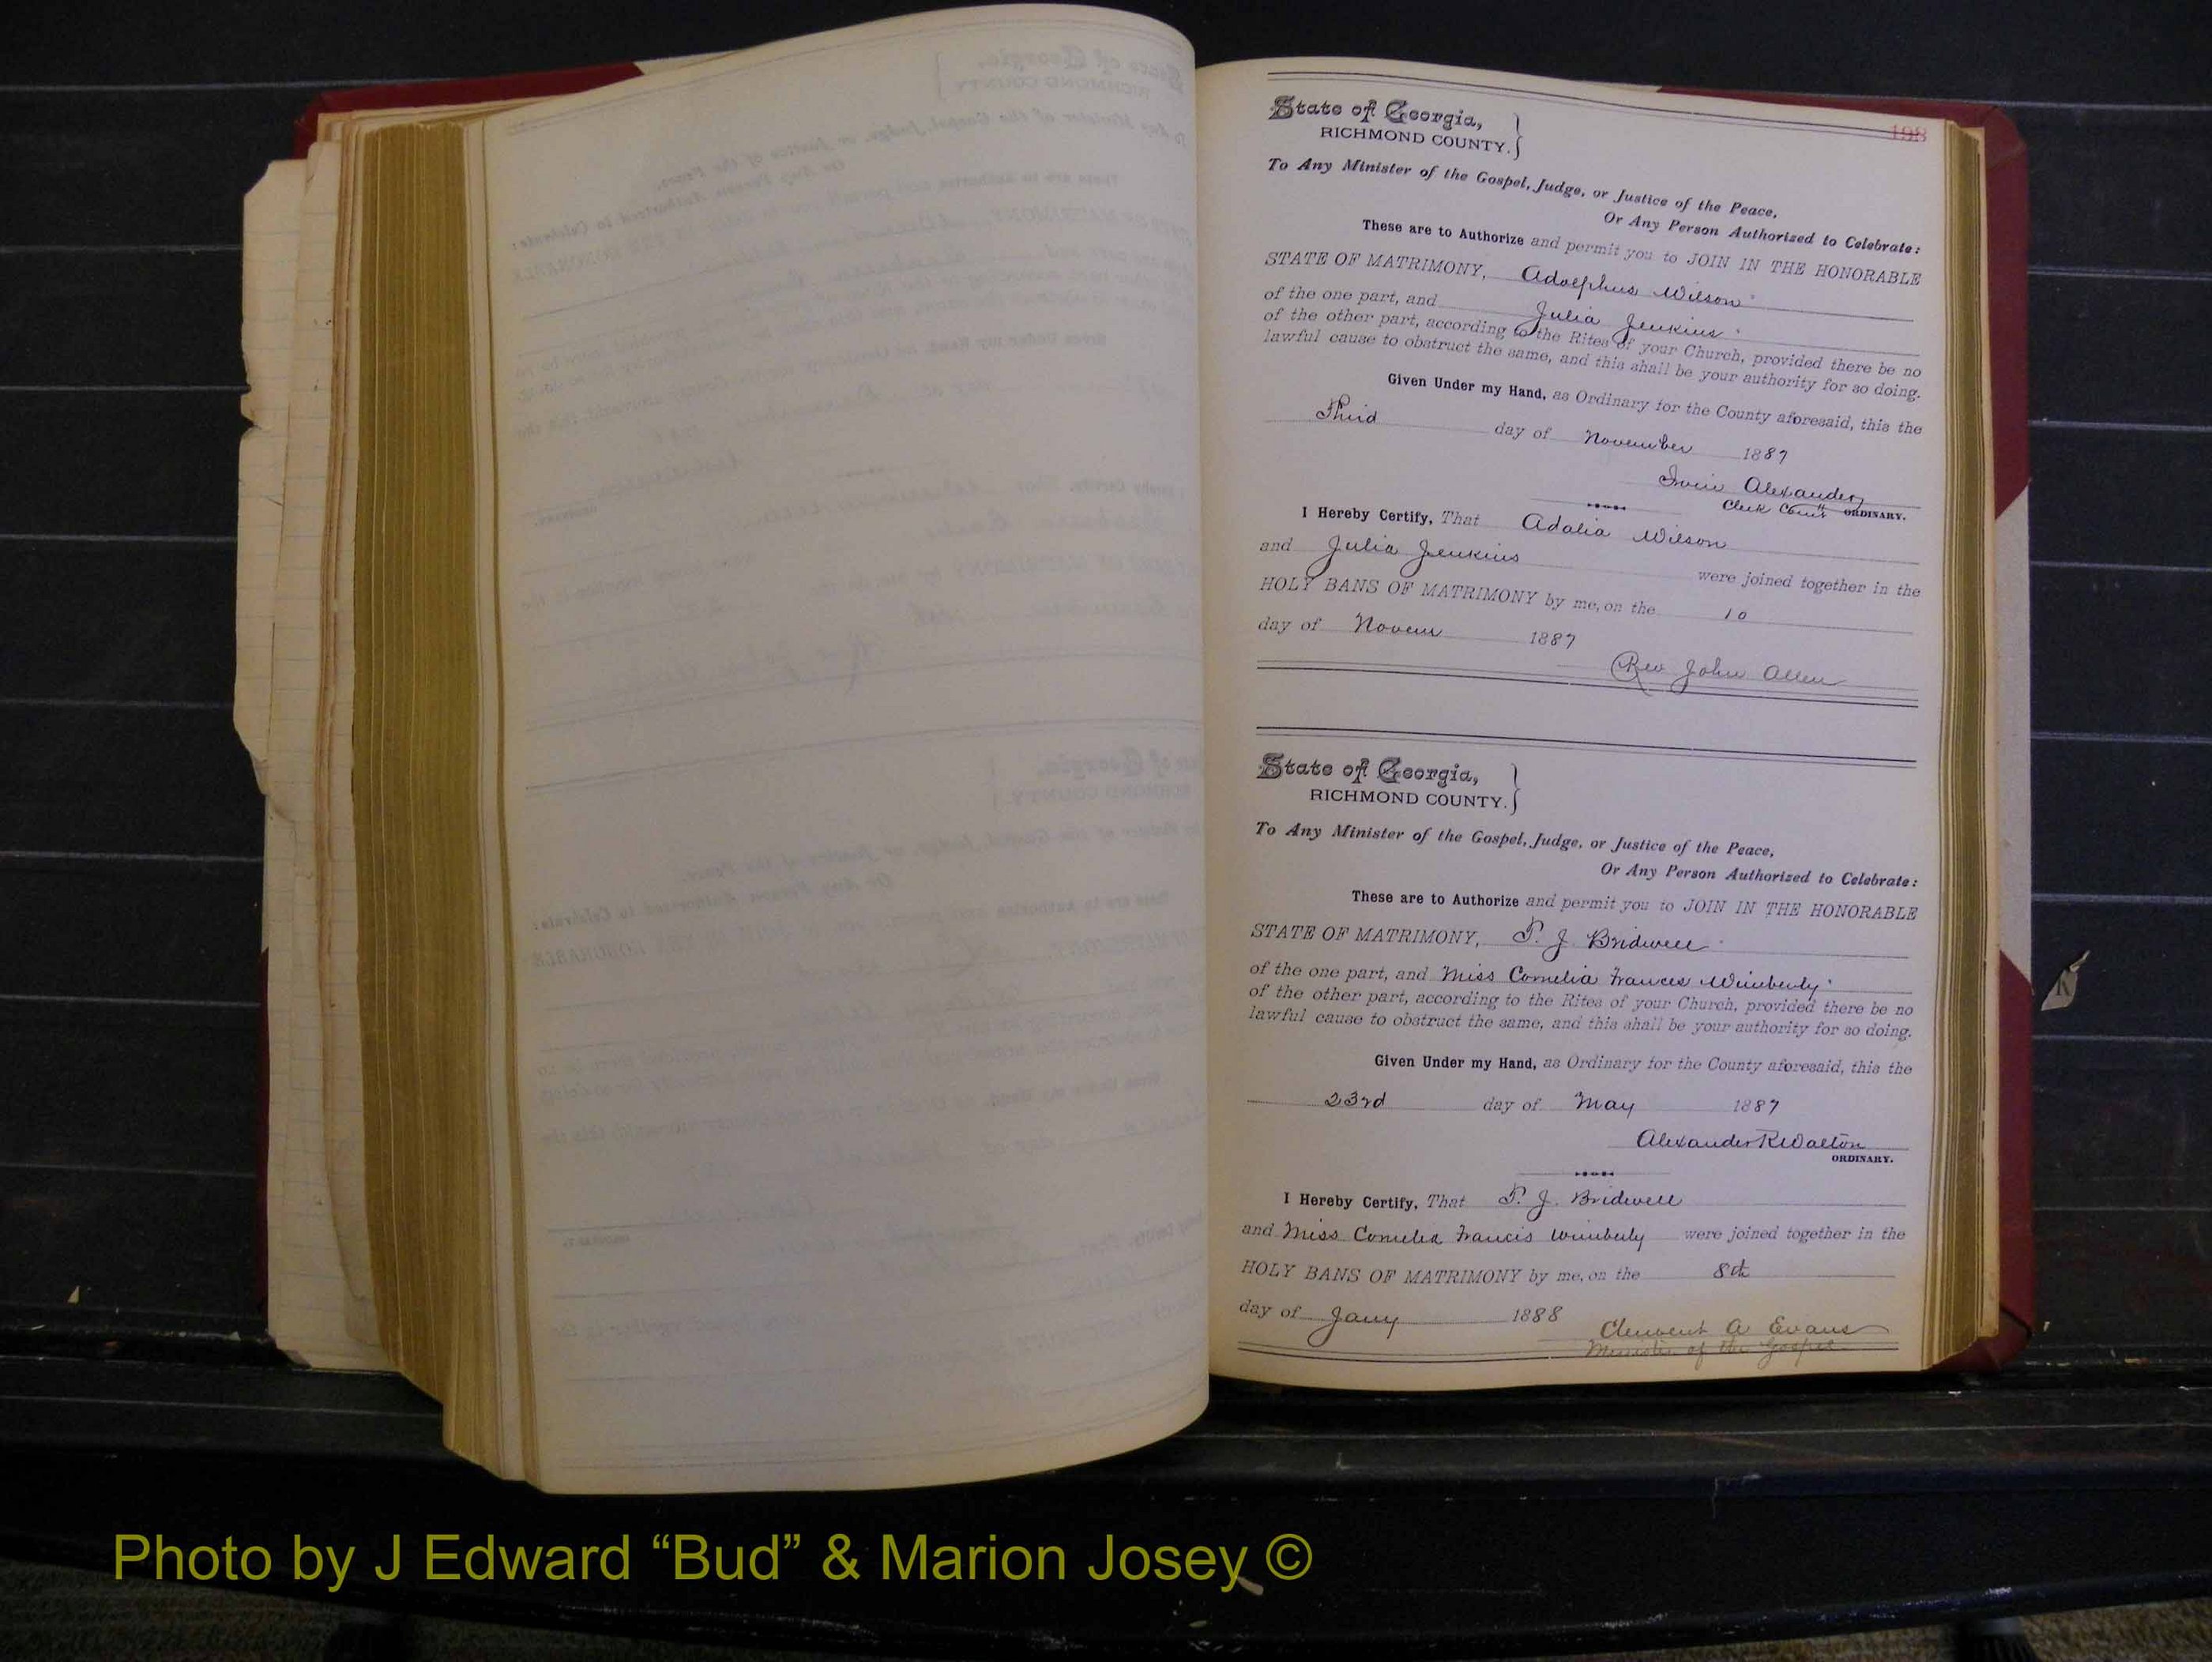 198
State of Georgia,
RICHMOND COUNTY.
To Any Minister of the Gospel, Judge, or Justice of the Peace,
Or Any Person Authorized to Celebrate:
These are to Authorize and permit you to JOIN IN THE HONORABLE
STATE OF MATRIMONY, Adolphus Wilson
of the one part, and Julia Jenkins
of the other part, according to the Rites of your Church, provided there be no
lawful cause to obstruct the same, and this shall be your authority for so doing.
Given Under my Hand, as Ordinary for the County aforesaid, this the
Third day of November 1887
Irvin Alexander
Clerk Court ORDINARY.
I Hereby Certify, That Adalia Wilson
and Julia Jenkins were joined together in the
HOLY BANS OF MATRIMONY by me, on the 10
day of Novem 1887
Rev John Allen
State of Georgia,
RICHMOND COUNTY.
To Any Minister of the Gospel, Judge, or Justice of the Peace,
Or Any Person Authorized to Celebrate:
These are to Authorize and permit you to JOIN IN THE HONORABLE
STATE OF MATRIMONY, J. Bridwell
of the one part, and Miss Cornelia Frances Wimberly
of the other part, according to the Rites of your Church, provided there be no
lawful cause to obstruct the same, and this shall be your authority for so doing.
Given Under my Hand, as Ordinary for the County aforesaid, this the
23rd day of May 1887
Alexander R Walton
ORDINARY.
I Hereby Certify, That J. Bridwell
and Miss Cornelia Francis Wimberly were joined together in the
HOLY BANS OF MATRIMONY by me, on the 8th
day of Jany 1888
Clement A Evans
Minister of the Gospel
Photo by J Edward “Bud” & Marion Josey ©